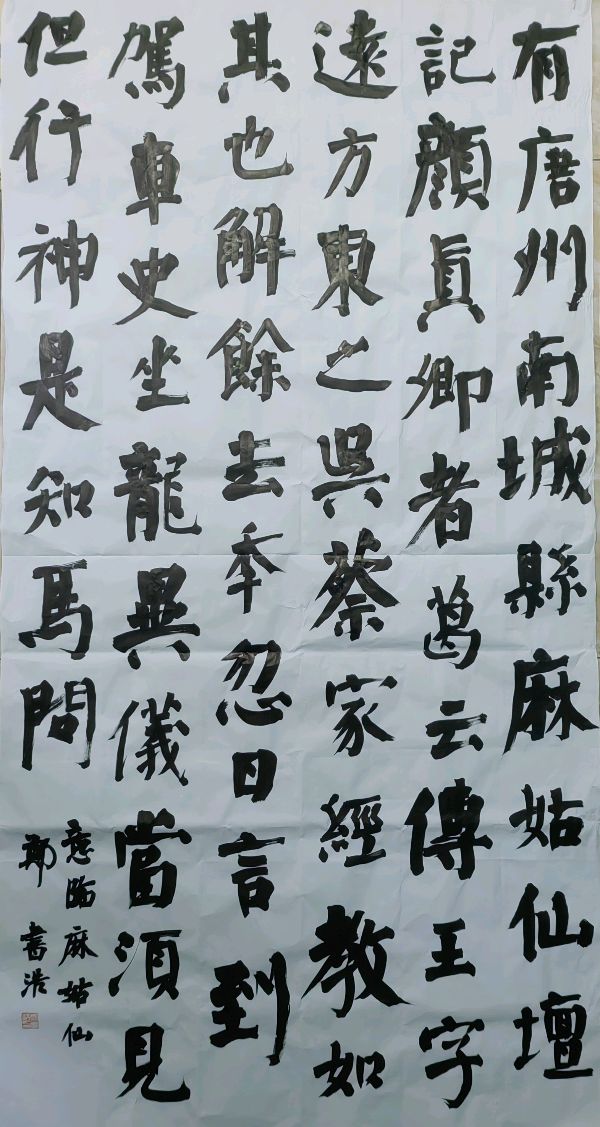 有唐州南城縣麻姑仙壇
記顏真卿者葛云傳王字
遠方東之吳蔡家經教如
其也解餘去季忽日言到
駕車史坐龍異儀當須見
但行神是知馬問
意臨麻姑仙
鄭書浩